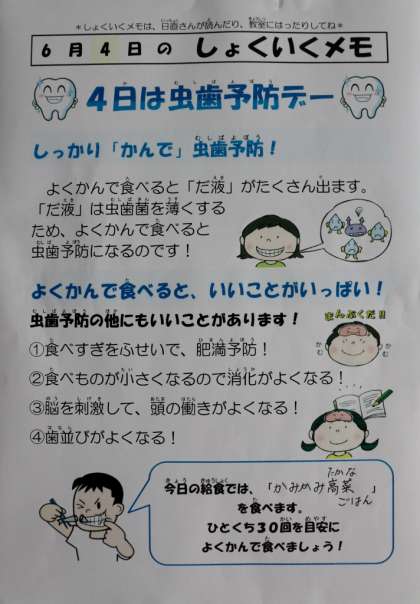 ＊しょくいくメモは、日直さんが読んだり、教室にはったりしてね＊
６月４日の しょくいくメモ
４日は虫歯予防デー
しっかり「かんで」虫歯予防！
よくかんで食べると「だ液」がたくさん出ます。
「だ液」は虫歯菌を薄くする
ため、よくかんで食べると
虫歯予防になるのです！
よくかんで食べると、いいことがいっぱい！
虫歯予防の他にもいいことがあります！
まんぷくだ!!
かむ
かむ
①食べすぎをふせいで、肥満予防！
②食べものが小さくなるので消化がよくなる！
③脳を刺激して、頭の働きがよくなる！
④歯並びがよくなる！
今日の給食では、「かみかみ高菜ごはん」
を食べます。
ひとくち３０回を目安に
よくかんで食べましょう！